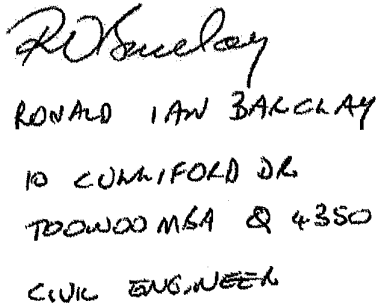 RONALD IAN BARCLAY
10 CUNLIFORD DR
TOOWOOMBA Q 4350
CIVIL ENGINEER